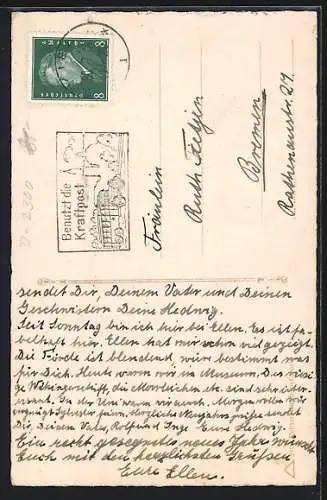 8 8
Deutsches
Benutzt die
Kraftpost
D-2300
Fräulein
Ruth
Bremen
Rathenaustr. 29.
sendet Dir, Deinem Vater und Deinen
Geschwistern Deine Hedwig.
Seit Sonntag bin ich hier bei Ellen. Es ist fa-
belhaft hier. Ellen hat mir schon viel gezeigt.
Die Förde ist blendend, wäre bestimmt was
für Dich. Heute waren wir im Museum. Das rie-
sige Wikingerschiff, die Moorleichen etc. sind sehr inter-
essant. In der Uni waren wir auch. Morgen wollen wir
vergnügt Sylvester feiern. Herzliche Neujahrsgrüße sendet
Dir, Deinem Vater, Rolf und Inge Eure Hedwig.
Ein recht gesegnetes neues Jahr wünscht
Euch mit den herzlichsten Grüßen
Eure Ellen.